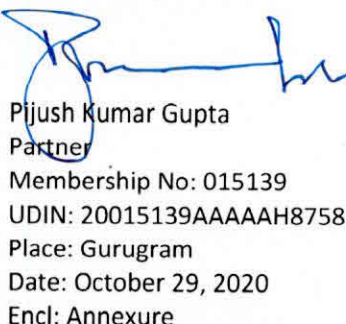 Pijush Kumar Gupta
Partner
Membership No: 015139
UDIN: 20015139AAAAAH8758
Place: Gurugram
Date: October 29, 2020
Encl: Annexure